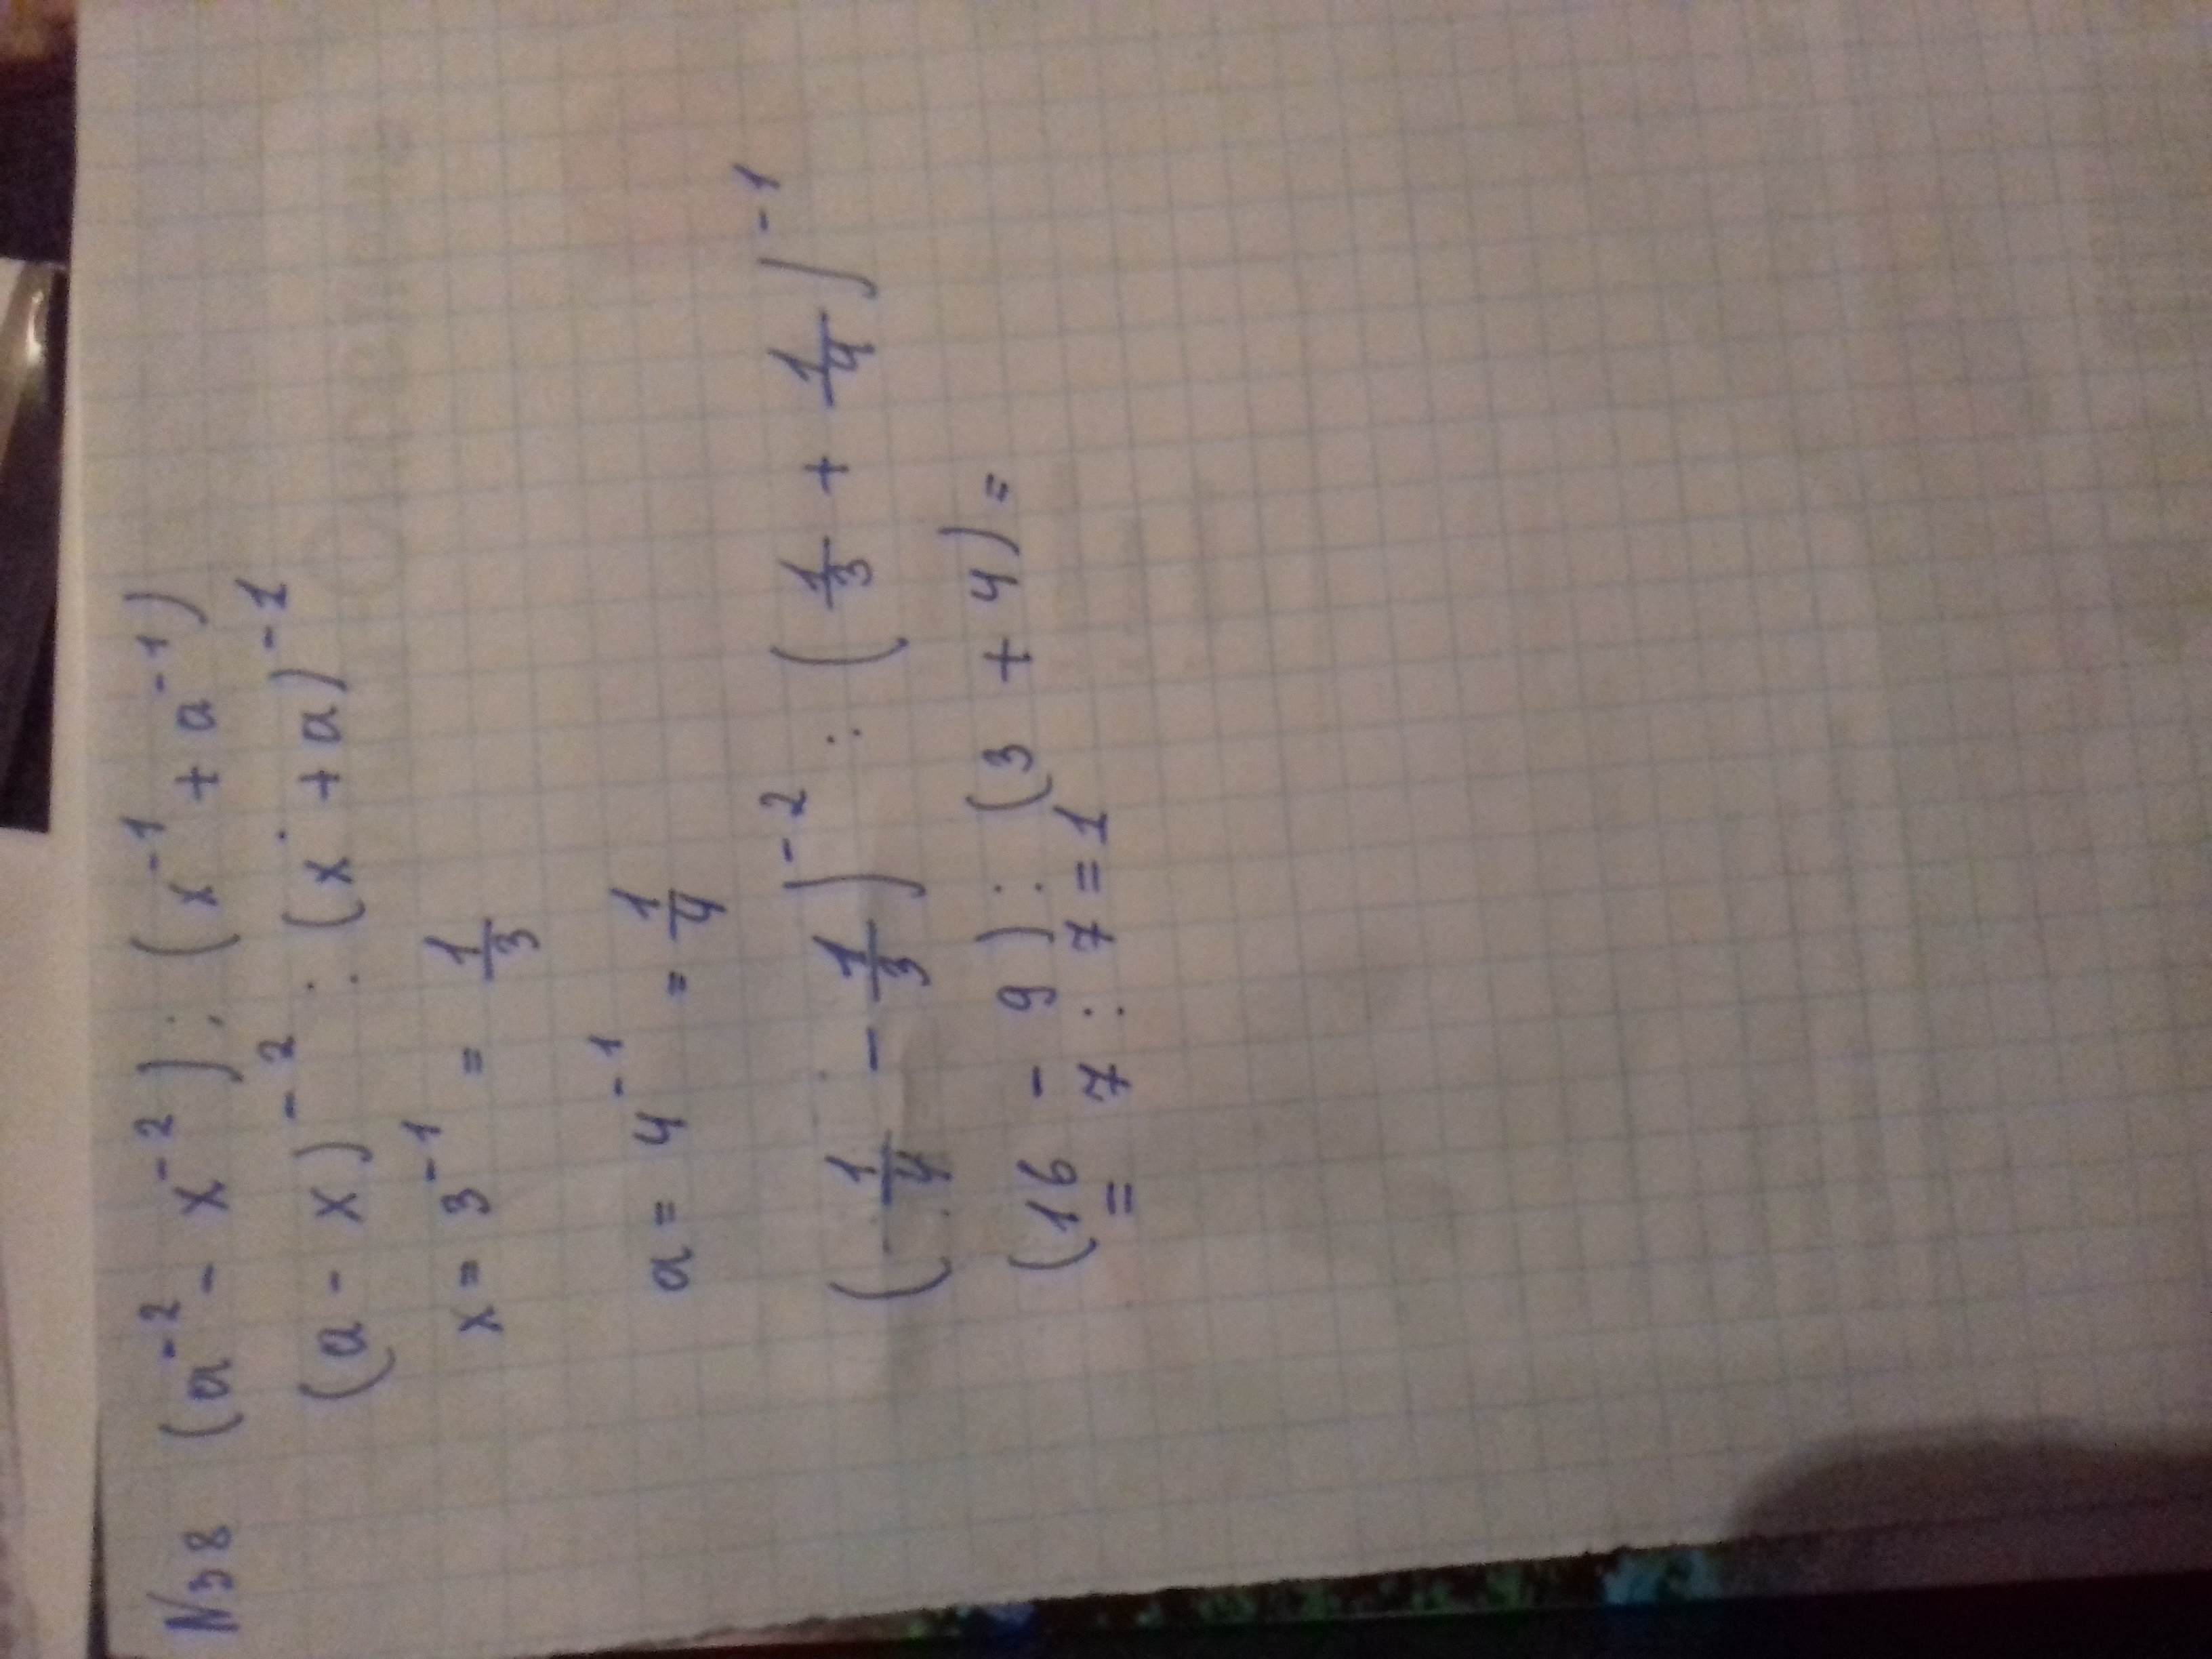 N38 (a⁻² - x⁻²) : (x⁻¹ + a⁻¹)
(a - x)⁻² : (x + a)⁻¹
x = 3⁻¹ = 1/3
a = 4⁻¹ = 1/4
(1/4 - 1/3)⁻² : (1/3 + 1/4)⁻¹
(16 - 9) : (3 + 4) =
= 7 : 7 = 1